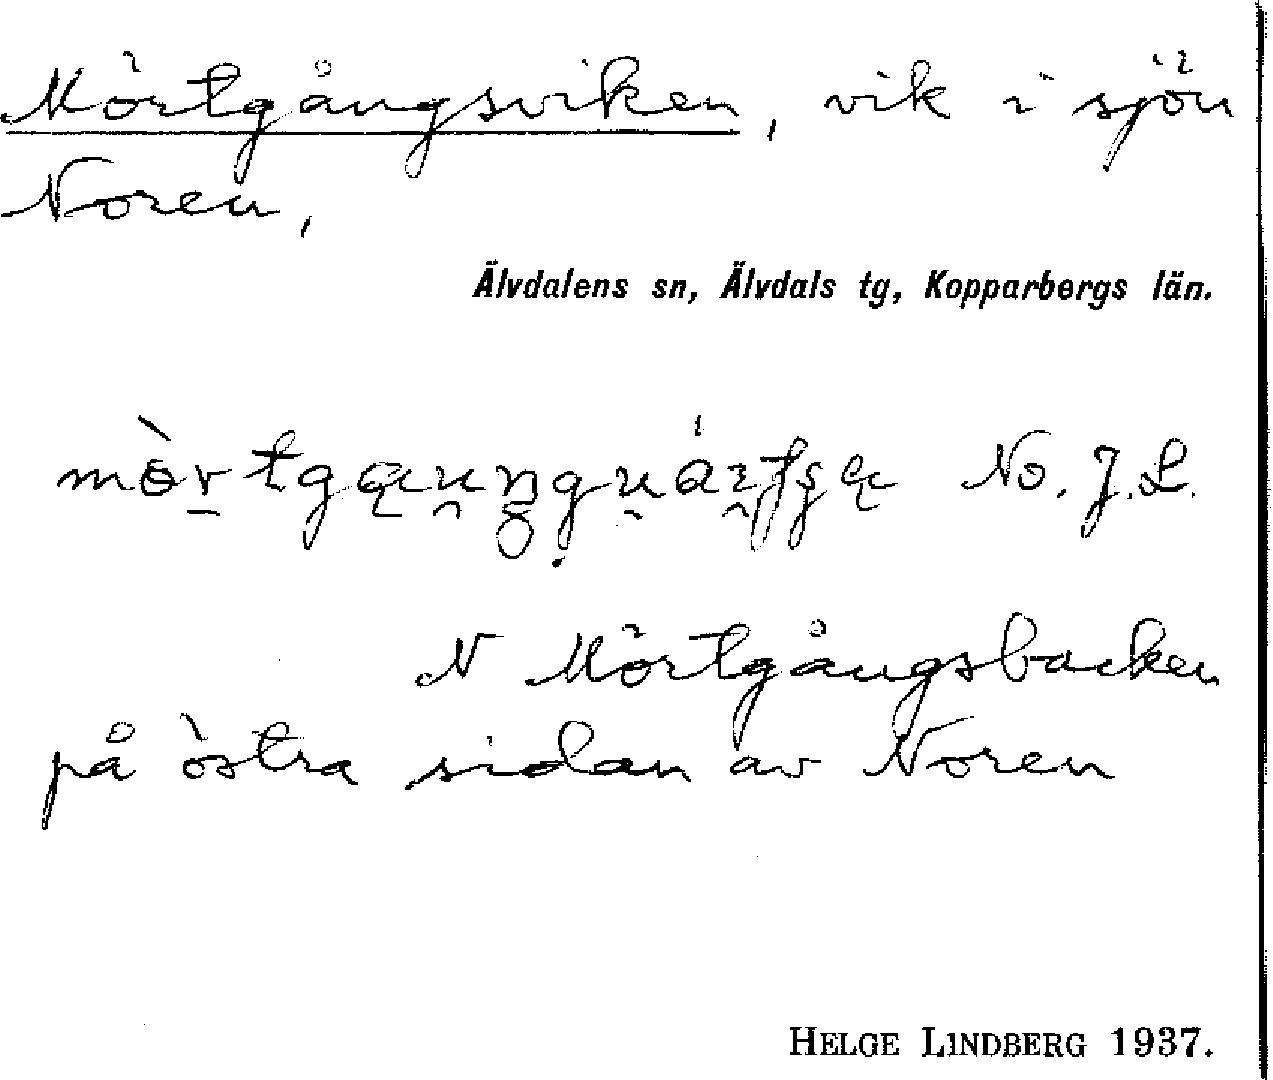 Mörtgångsviken, vik i sjön
Noren,
Älvdalens sn, Älvdals tg, Kopparbergs län.
No. J. L.
N Mörtgångsbacken
på östra sidan av Noren
HELGE LINDBERG 1937.